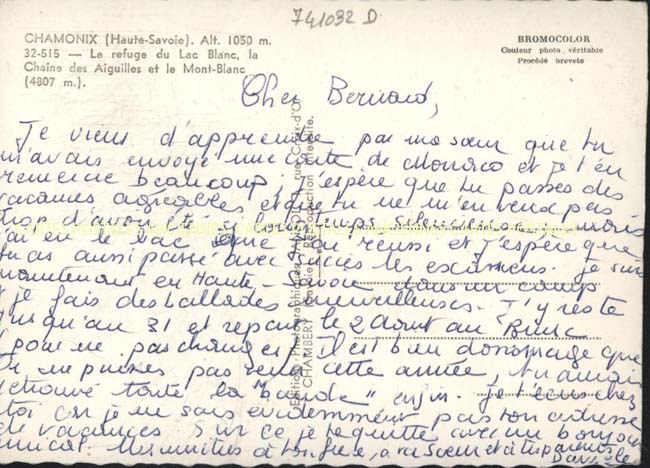 741032 D
CHAMONIX (Haute-Savoie). Alt. 1050 m.
32-515 — Le refuge du Lac Blanc, la
Chaîne des Aiguilles et le Mont-Blanc
(4807 m.).
BROMOCOLOR
Couleur photo véritable
Procédé breveté
Cher Bernard,
Je viens d'apprendre par ma sœur que tu
m'avais envoyé une carte de Monaco et je t'en
remercie beaucoup. J'espère que tu passes des
vacances agréables et que tu ne m'en veux pas
trop d'avoir été si longtemps silencieuse, mais
j'ai eu le bac que j'ai réussi et j'espère que
tu as aussi passé avec succès tes examens. Je suis
maintenant en Haute-Savoie dans un camp
et je fais des ballades merveilleuses. J'y reste
jusqu'au 31 et repars le 2 août au
(pour ne pas changer) il est bien dommage que
tu ne puisses pas venir cette année, tu aurais
retrouvé toute la "bande" enfin. Je t'écris chez
toi car je ne sais évidemment pas ton adresse
de vacances. Sur ce je te quitte avec un bonjour
amical. Mes amitiés à ton frère, à ta sœur et à tes parents
Danièle
CHAMBÉRY